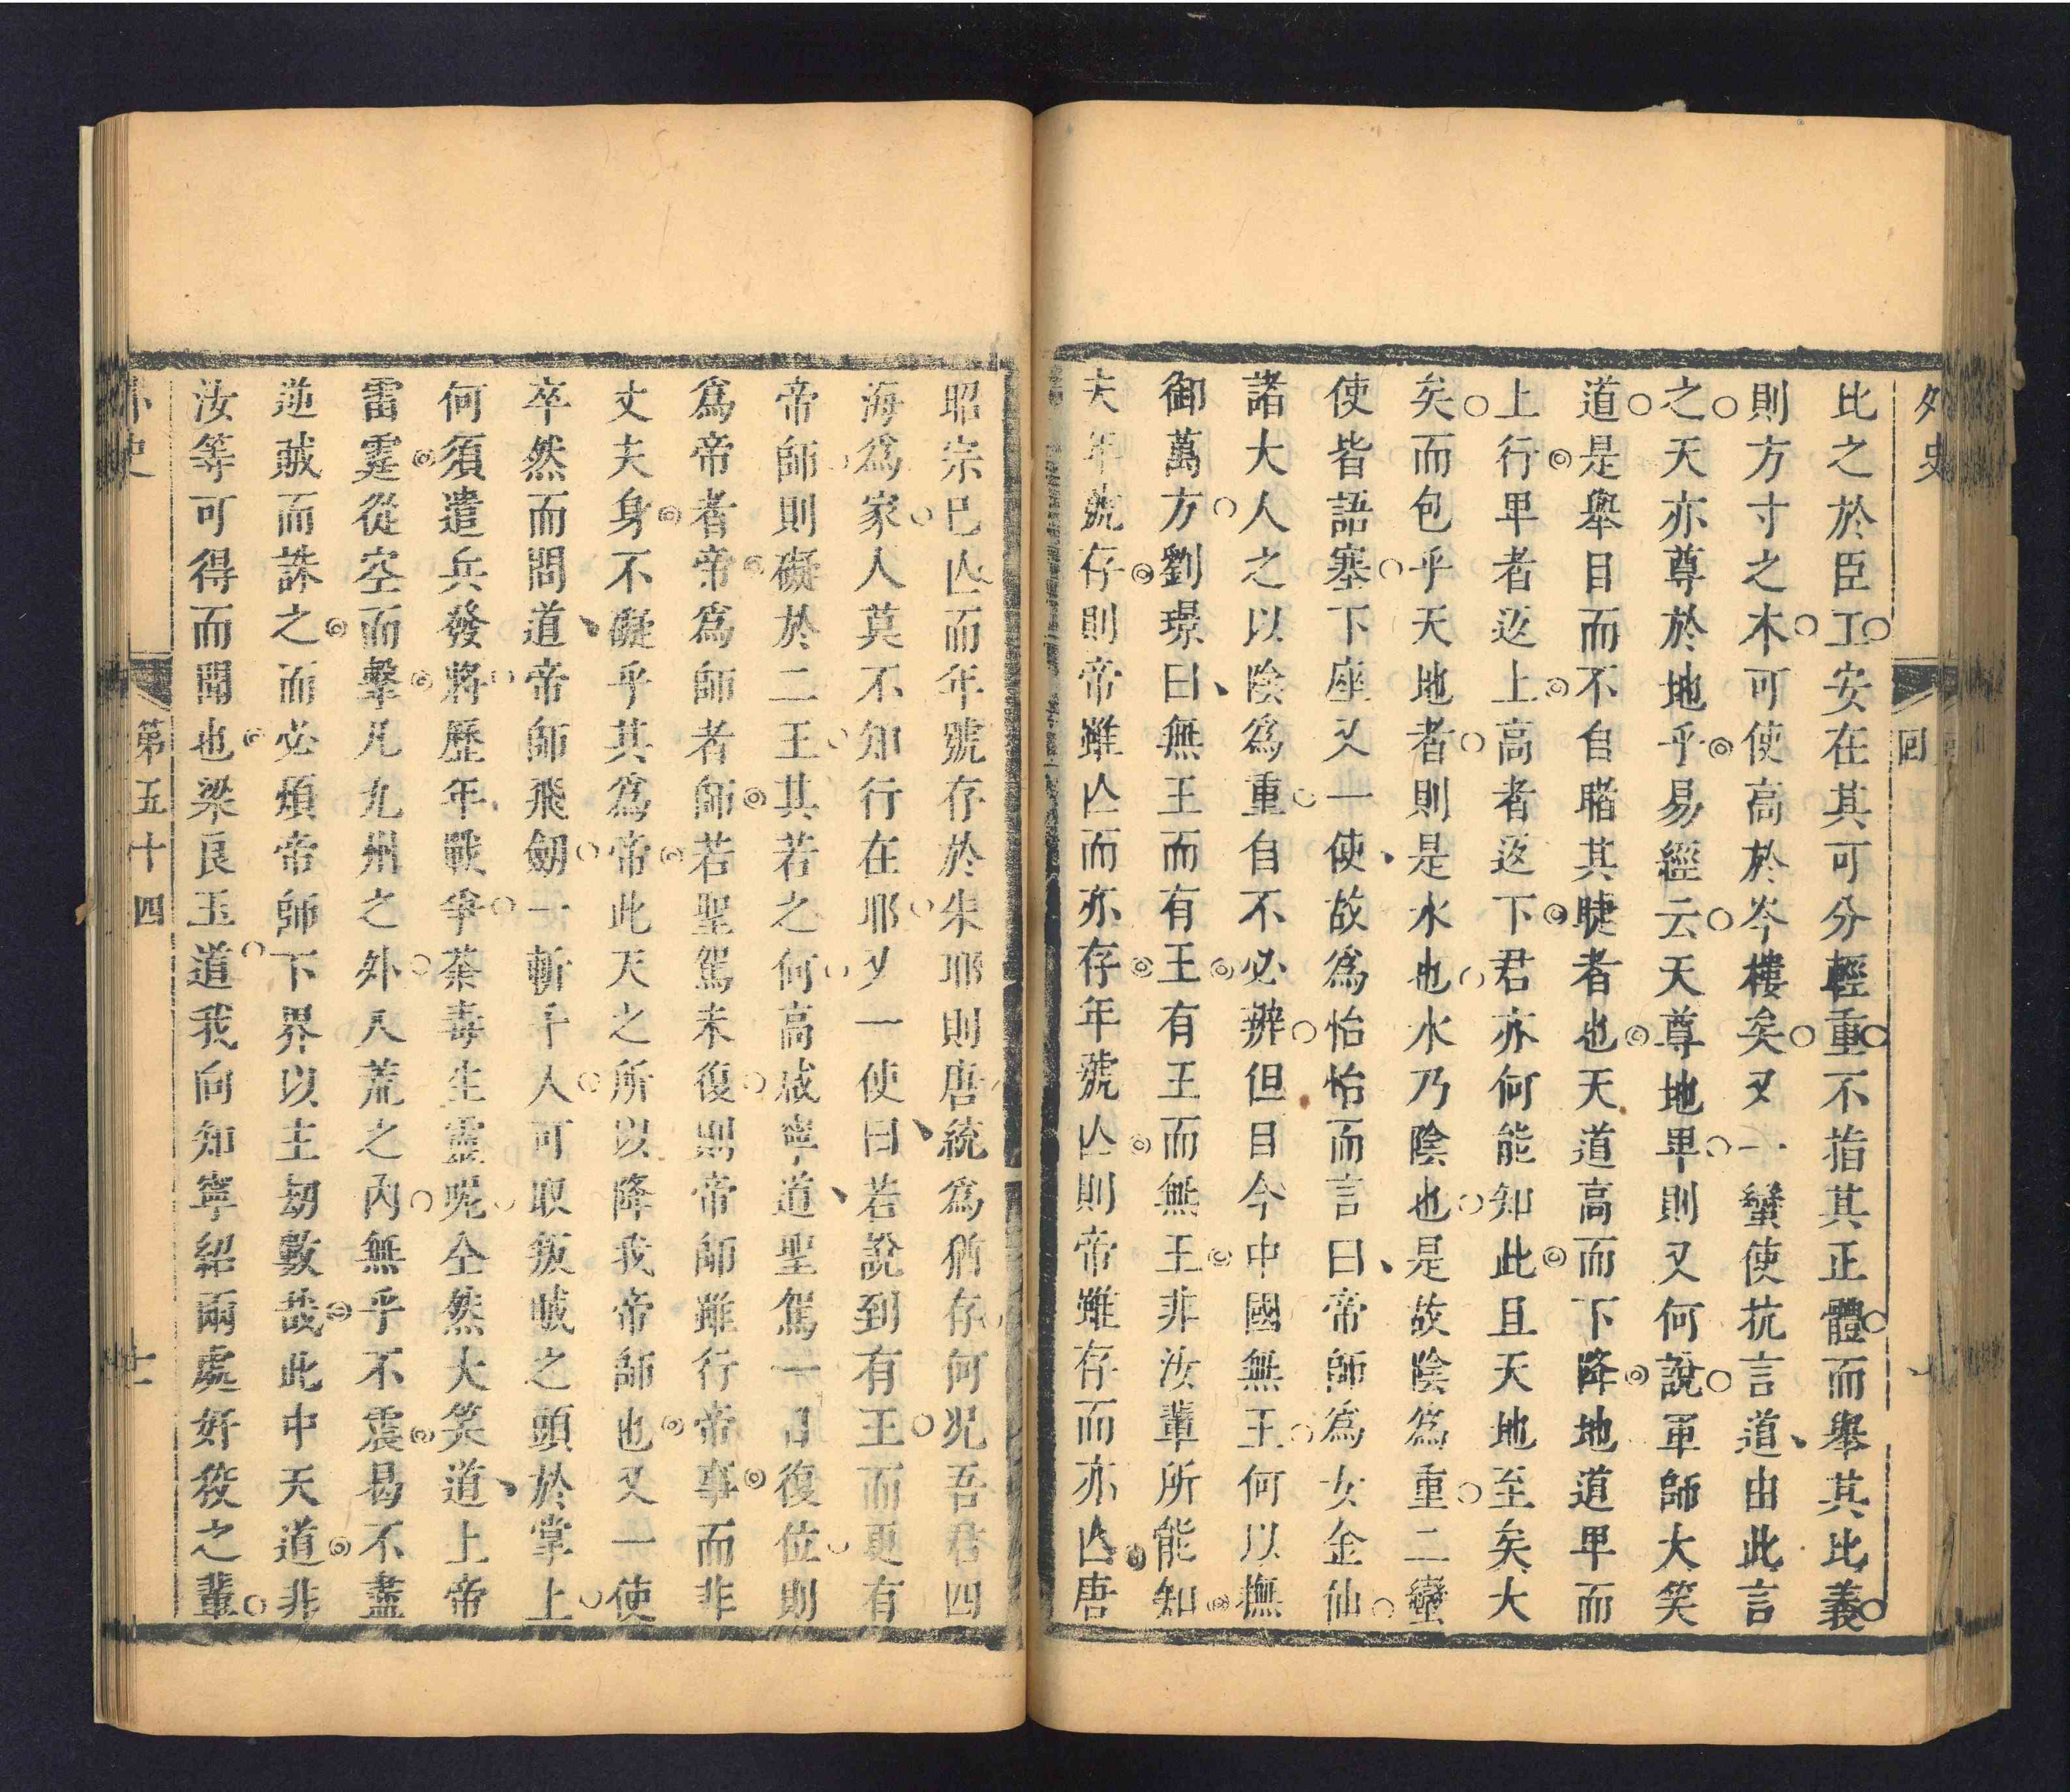 外史
回
比之於臣工安在其可分輕重不指其正體而舉其比義
則方寸之木可使高於岑樓矣又一蠻使抗言道由此言
之天亦尊於地乎易經云天尊地卑則又何說軍師大笑
道是舉目而不自睹其睫者也天道高而下降地道卑而
上行卑者返上高者返下君亦何能知此且天地至矣大
矣而包乎天地者則是水也水乃陰也是故陰為重二蠻
使皆語塞下座又一使故為怡怡而言曰帝師為女金仙
諸大人之以陰為重自不必辨但目今中國無王何以撫
御萬方劉璟曰無王而有王有王而無王非汝輩所能知
夫年號存則帝雖亾而亦存年號亾則帝雖存而亦亾唐
昭宗已亾而年號存於朱耶則唐統為猶存何况吾君四
海為家人莫不知行在耶又一使曰若說到有王而更有
帝師則礙於二王其若之何高咸寧道聖駕一日復位則
為帝者帝為師者師若聖駕未復則帝師雖行帝事而非
丈夫身不礙乎其為帝此天之所以降我帝師也又一使
卒然而問道帝師飛劒一斬千人可取叛賊之頭於掌上
何須遣兵發將歷年戰爭荼毒生靈呢仝然大笑道上帝
雷霆從空而擊凡九州之外八荒之內無乎不震曷不盡
逆賊而誅之而必煩帝師下界以主刼數哉此中天道非
汝等可得而聞也梁良玉道我向知寧紹兩處好狡之輩
外史
第五十四
十